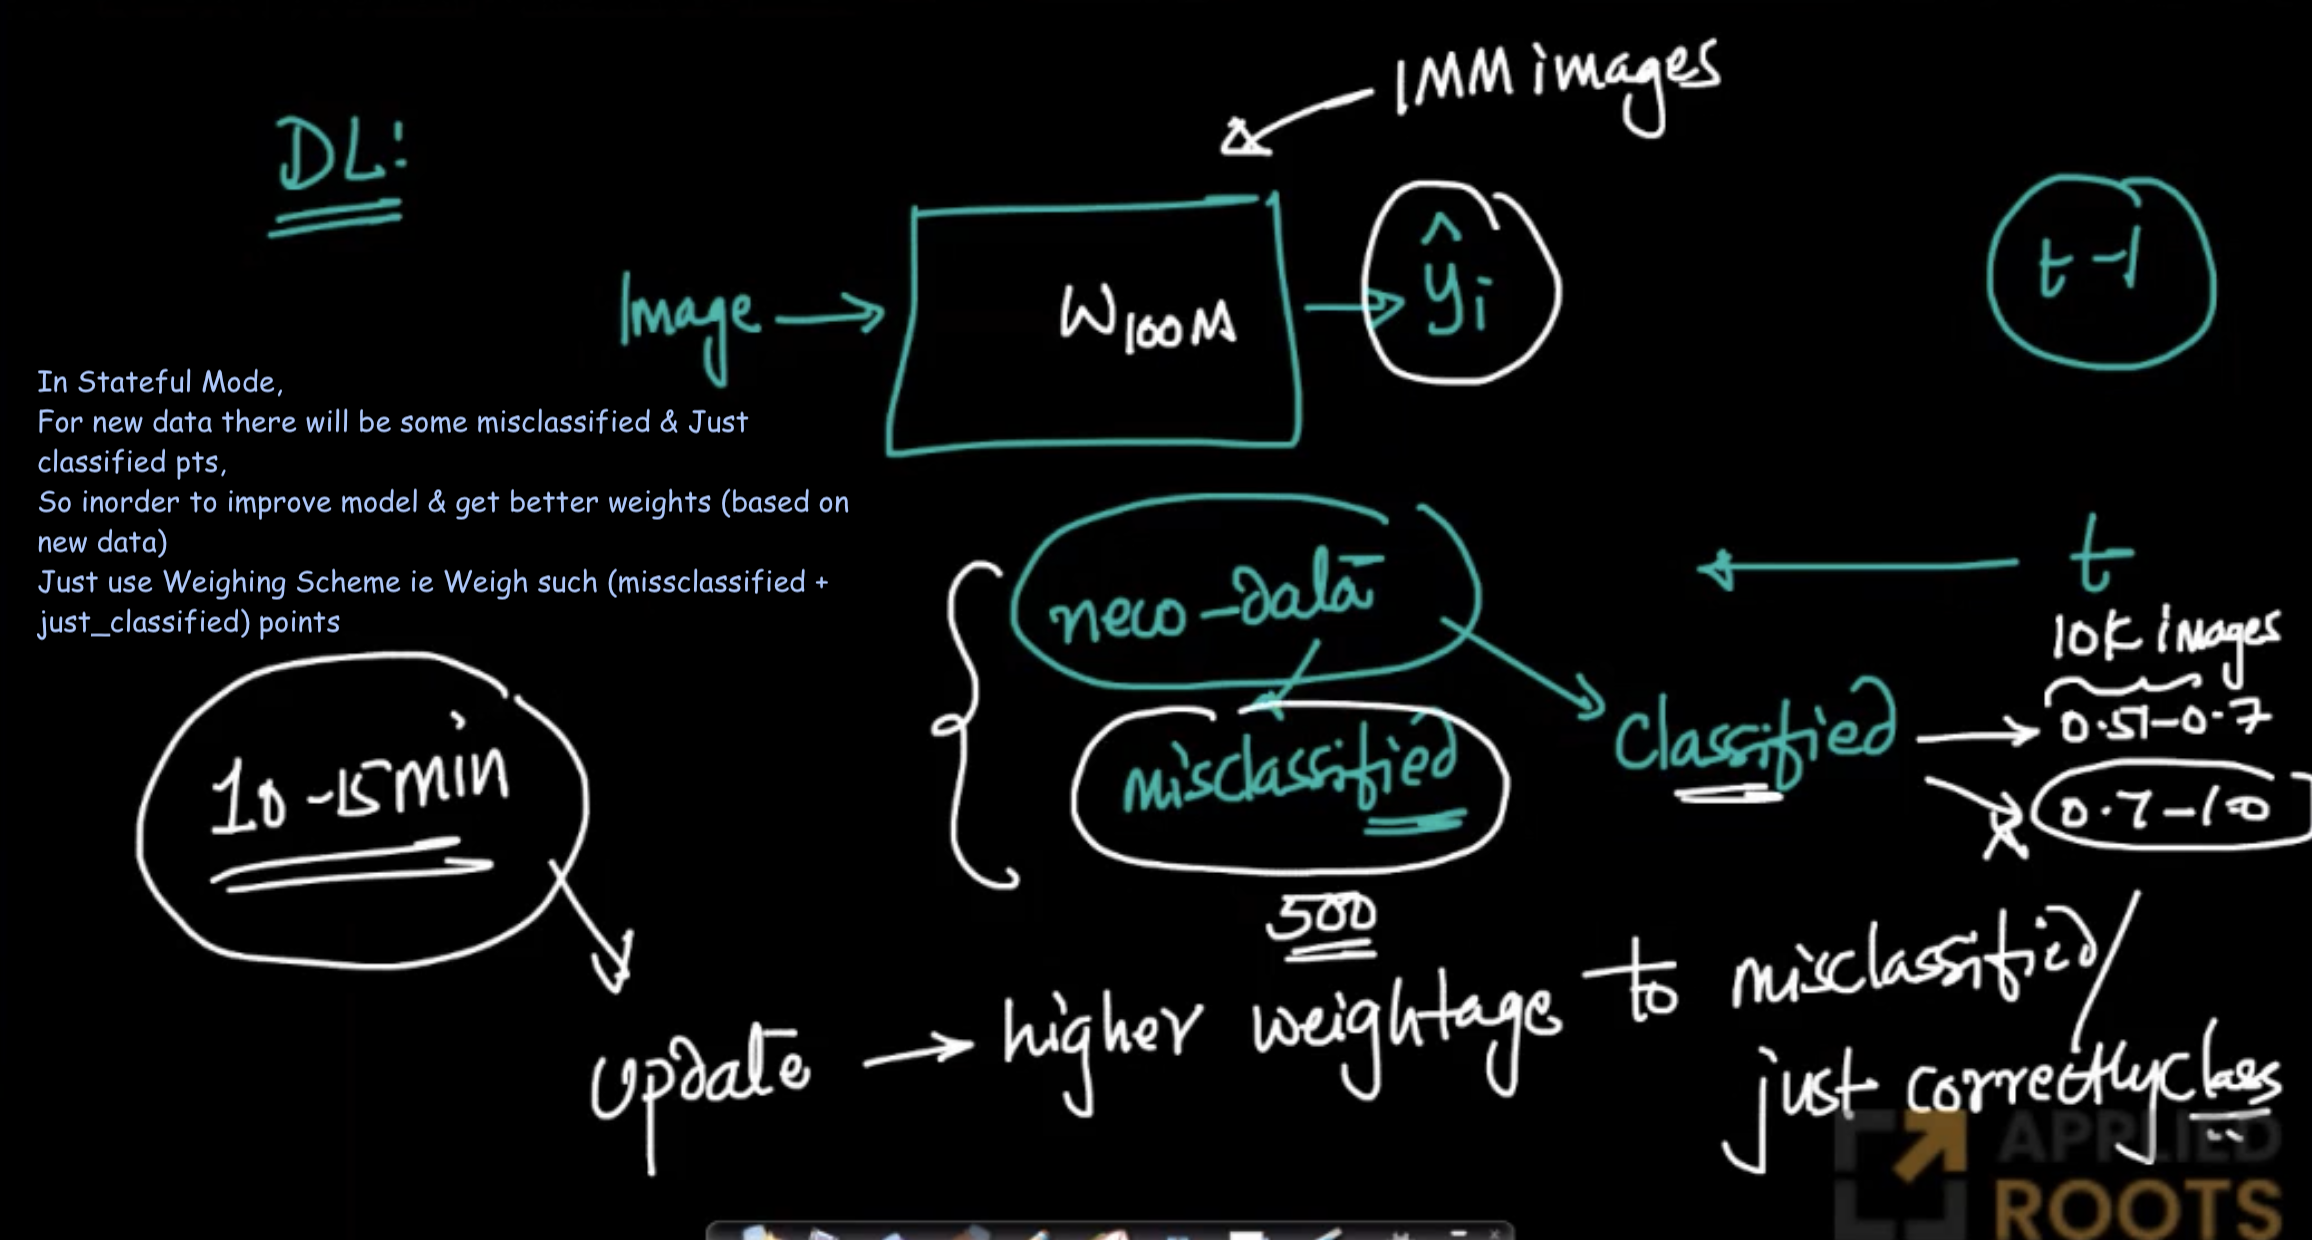 1MM images
DL:
Image → W100M → ŷi
t-1
In Stateful Mode,
For new data there will be some misclassified & Just
classified pts,
So inorder to improve model & get better weights (based on
new data)
Just use Weighing Scheme ie Weigh such (missclassified +
just_classified) points
new-data
t
10K images
misclassified
Classified
0.51-0.7
0.7-1.0
10-15min
500
update → higher weightage to misclassified/
just correctly class
APPLIED
ROOTS